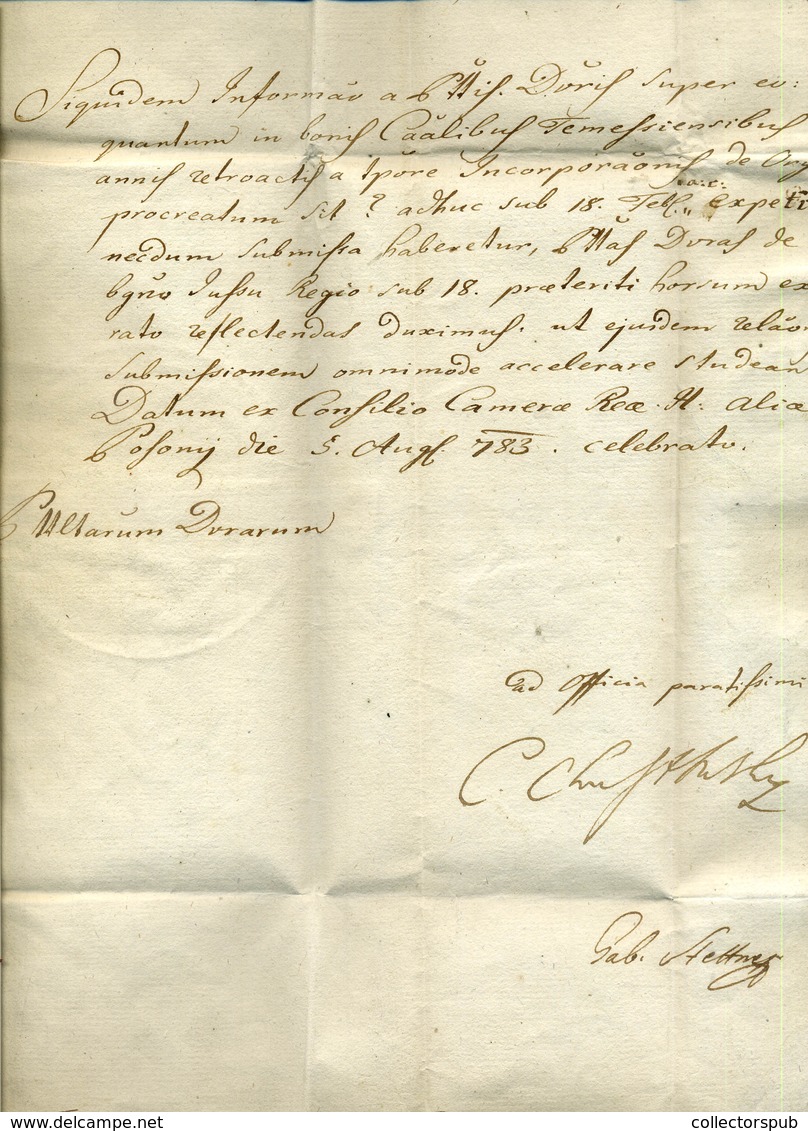 Siquidem Informaõ a PttiS. DõriS super eo:
quantum in boniS CaãlibuS TemessiensibuS
anniS retroactiS a tp̃ore IncorporaõniS de Org
procreatum sit? adhuc sub 18. Febr. a: c: expeti
necdum submissa haberetur, PttaS DoraS de
bgño Jussu Regio sub 18. præteriti horsum ex
rato reflectendas duximus. ut ejusdem relaõn
submissionem omnimode accelerare studean
Datum ex Consilio Cameræ Reæ. H: Aliæ
Posonij die 5. AugS. 783. celebrato.
Pttarum Dorarum
ad Officia paratissimi
C.
Gab.
collectorspub